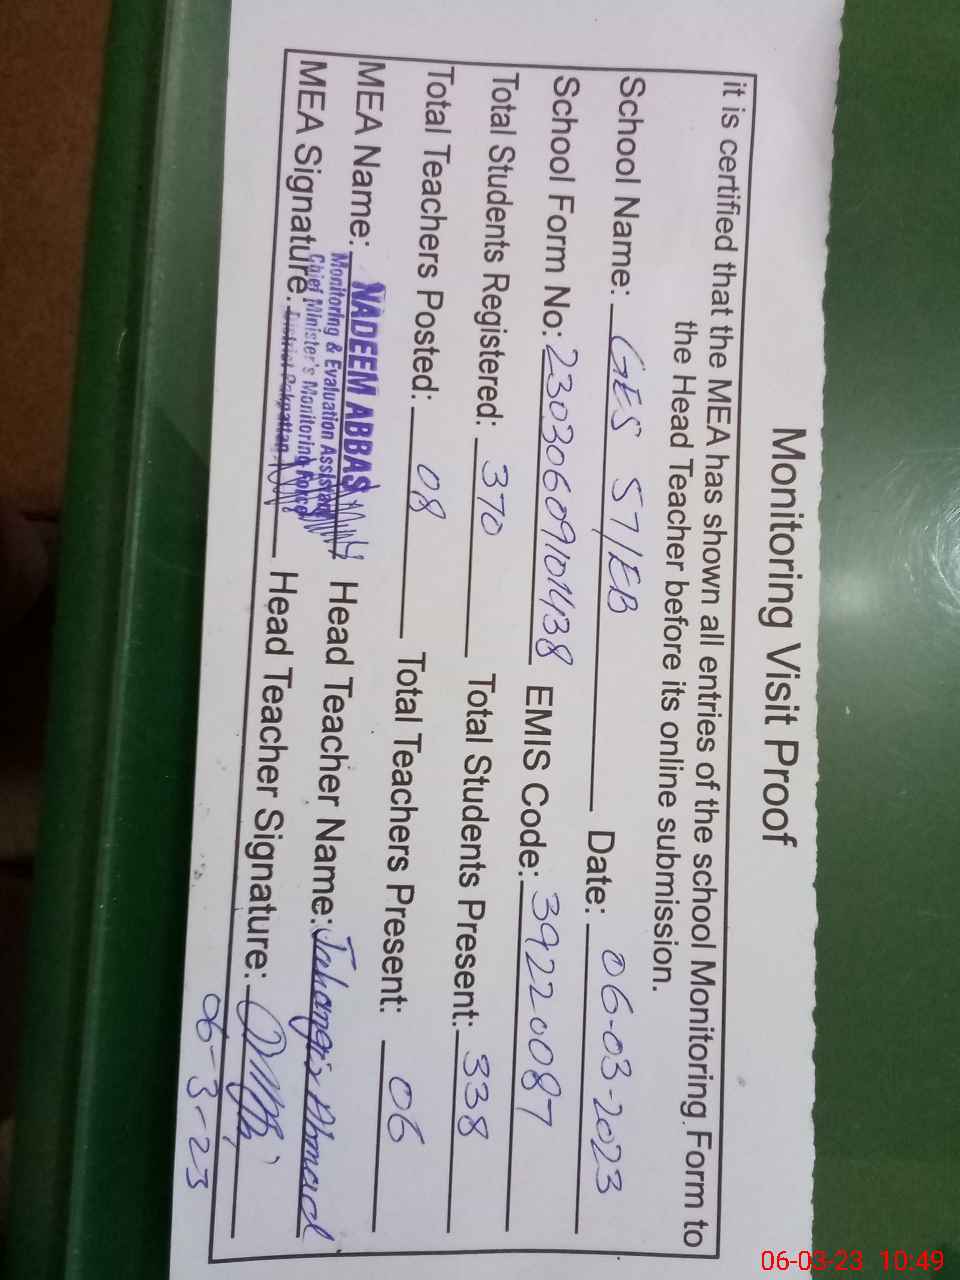 Monitoring Visit Proof
it is certified that the MEA has shown all entries of the school Monitoring Form to
the Head Teacher before its online submission.
School Name: GES 57/EB Date: 06-03-2023
School Form No: 2303060910438 EMIS Code: 39220087
Total Students Registered: 370 Total Students Present: 338
Total Teachers Posted: 08 Total Teachers Present: 06
MEA Name: NADEEM ABBAS Head Teacher Name: Jahangir Ahmad
Monitoring & Evaluation Assistant
Chief Minister's Monitoring Force
MEA Signature: District Pakpattan Head Teacher Signature:
06-3-23
06-03-23 10:49